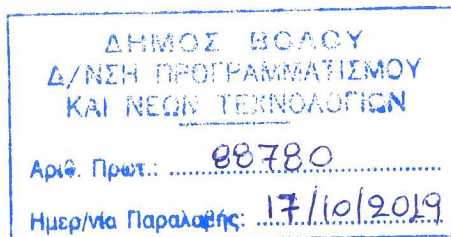 ΔΗΜΟΣ ΒΟΛΟΥ
Δ/ΝΣΗ ΠΡΟΓΡΑΜΜΑΤΙΣΜΟΥ
ΚΑΙ ΝΕΩΝ ΤΕΧΝΟΛΟΓΙΩΝ
Αριθ. Πρωτ.: 88780
Ημερ/νία Παραλαβής: 17/10/2019